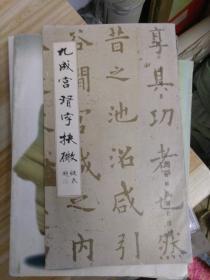 享其功者也然
昔之池沼咸引
谷澗宫城之内
九成宫習字抉微